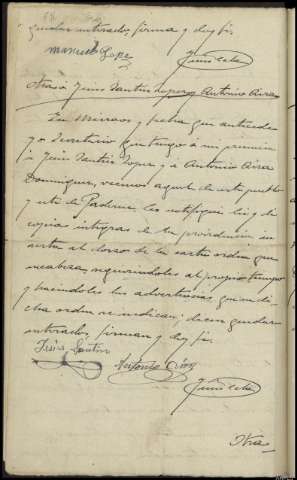 quedar enterado, firma y doy fé.
Manuel Lopez
Otra á Jesus Santin Lopez y Antonio Airas
En Miraos y fecha que antecede
yo Secretario que tengo á mi presencia
á Jesús Santin Lopez y á Antonio Airas
Dominguez, vecinos aquel de este pueblo
y este de Paderne les notifiqué leí y dí
copia integra de la providencia in
serta al dorso de la carta orden que
encabeza, requiriendoles al propio tiempo
y haciendoles las advertencias que en di
cha orden se indican; dicen quedar
enterados, firman y doy fé.
Jesús Santin
Antonio Airas
Otra